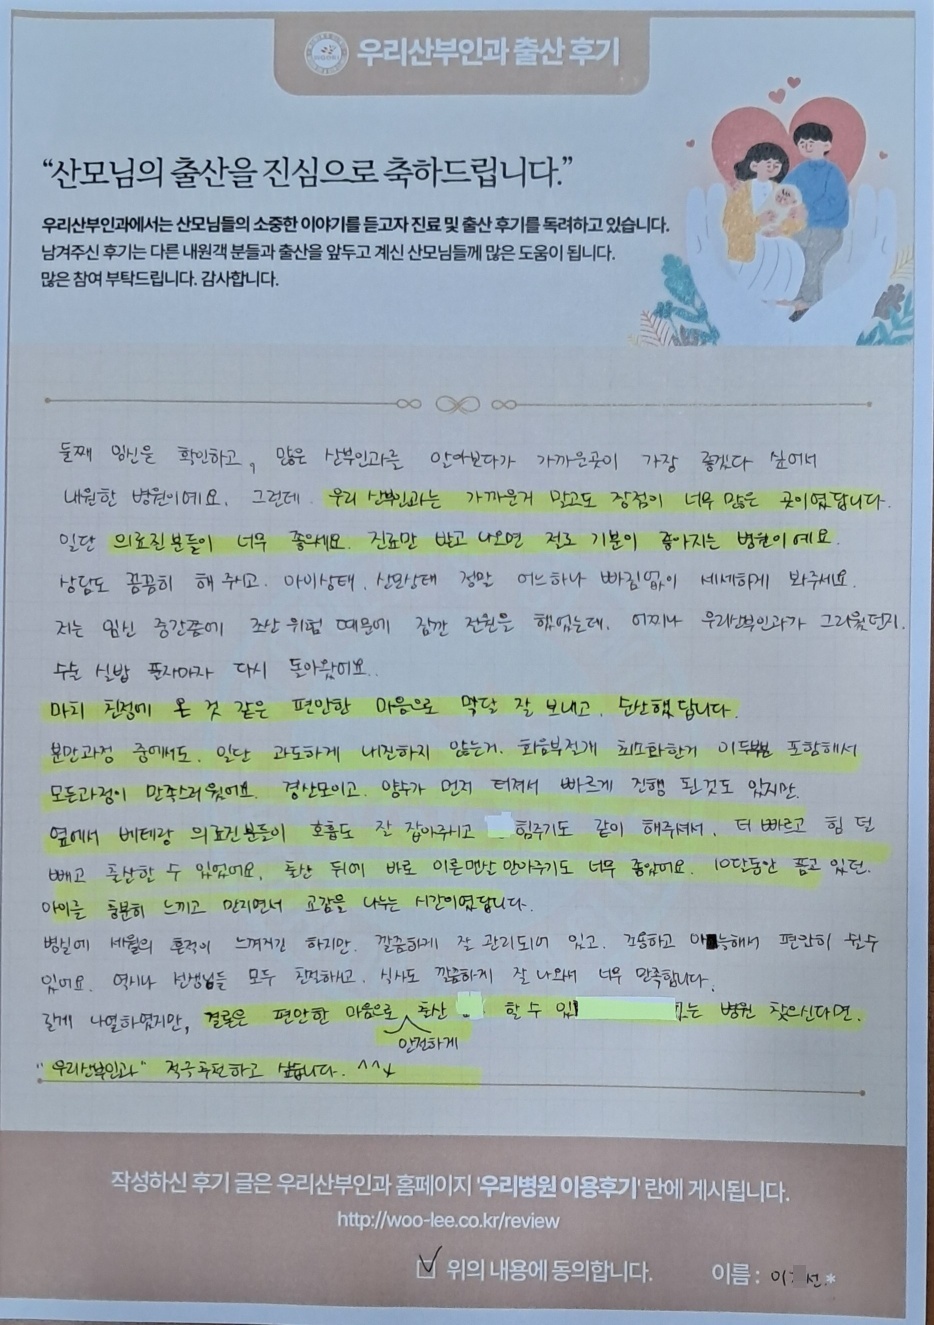 우리산부인과 출산 후기
“산모님의 출산을 진심으로 축하드립니다.”
우리산부인과에서는 산모님들의 소중한 이야기를 듣고자 진료 및 출산 후기를 독려하고 있습니다.
남겨주신 후기는 다른 내원객 분들과 출산을 앞두고 계신 산모님들께 많은 도움이 됩니다.
많은 참여 부탁드립니다. 감사합니다.
둘째 임신을 확인하고, 많은 산부인과를 알아보다가 가까운곳이 가장 좋겠다 싶어서
내원한 병원이예요. 그런데 우리 산부인과는 가까운거 말고도 장점이 너무 많은 곳이였답니다.
일단 의료진분들이 너무 좋으세요. 진료만 받고 나오면 절로 기분이 좋아지는 병원이예요.
상담도 꼼꼼히 해 주시고. 아이상태, 산모상태 정말 어느하나 빠짐없이 세세하게 봐주세요.
저는 임신 중간쯤에 조산 위험 때문에 잠깐 전원을 했었는데. 어찌나 우리산부인과가 그리웠던지.
수술 실밥 풀자마자 다시 돌아왔어요..
마치 친정에 온 것 같은 편안한 마음으로 막달 잘 보내고, 순산했답니다.
분만과정 중에서도. 일단 과도하게 내진하지 않는거. 회음부절개 최소화한거 이두 포함해서
모든과정이 만족스러웠어요. 경산모이고. 양수가 먼저 터져서 빠르게 진행 된것도 있지만.
옆에서 베테랑 의료진분들이 호흡도 잘 잡아주시고 힘주기도 같이 해주셔서. 더 빠르고 힘 덜
빼고 출산할 수 있었어요. 출산 뒤에 바로 이른맨살 안아주기도 너무 좋았어요. 10달동안 품고 있던.
아이를 충분히 느끼고 만지면서 교감을 나누는 시간이였답니다.
병실에 세월의 흔적이 느껴지긴 하지만. 깔끔하게 잘 관리되어 있고. 조용하고 아늑해서 편안히 쉴수
있어요. 역시나 선생님들 모두 친절하시고. 식사도 깔끔하게 잘 나와서 너무 만족합니다.
길게 나열하였지만, 결론은 편안한 마음으로 안전하게 출산 할 수 있는 병원 찾으신다면.
"우리산부인과" 적극추천하고 싶습니다. ^^
작성하신 후기 글은 우리산부인과 홈페이지 '우리병원 이용후기' 란에 게시됩니다.
http://woo-lee.co.kr/review
위의 내용에 동의합니다. 이름 : 이 선 *